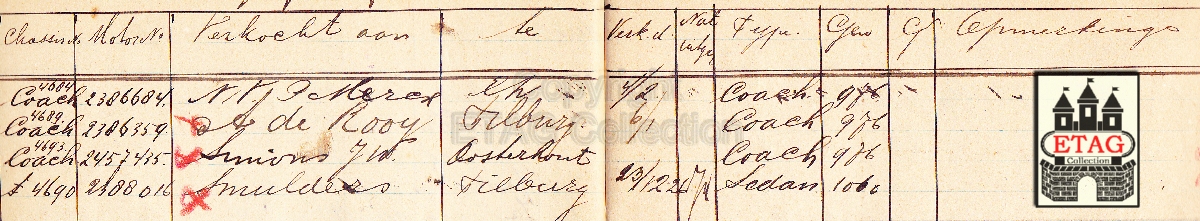 Chassis N. Motor No Verkocht aan te Verk.d. Nat Type. Opmerkinge
4684. Coach 2386684. Merex Eh. 4/2 Coach 976
4689. Coach 2386359. A de Rooy Tilburg 6/1 Coach 976
4693. Coach 2457435. Simons Oosterhout Coach 976
£ 4690 2388016 Smulders Tilburg 23/12 Sedan 1060
copyright
ETAG Collection
ETAG
Collection